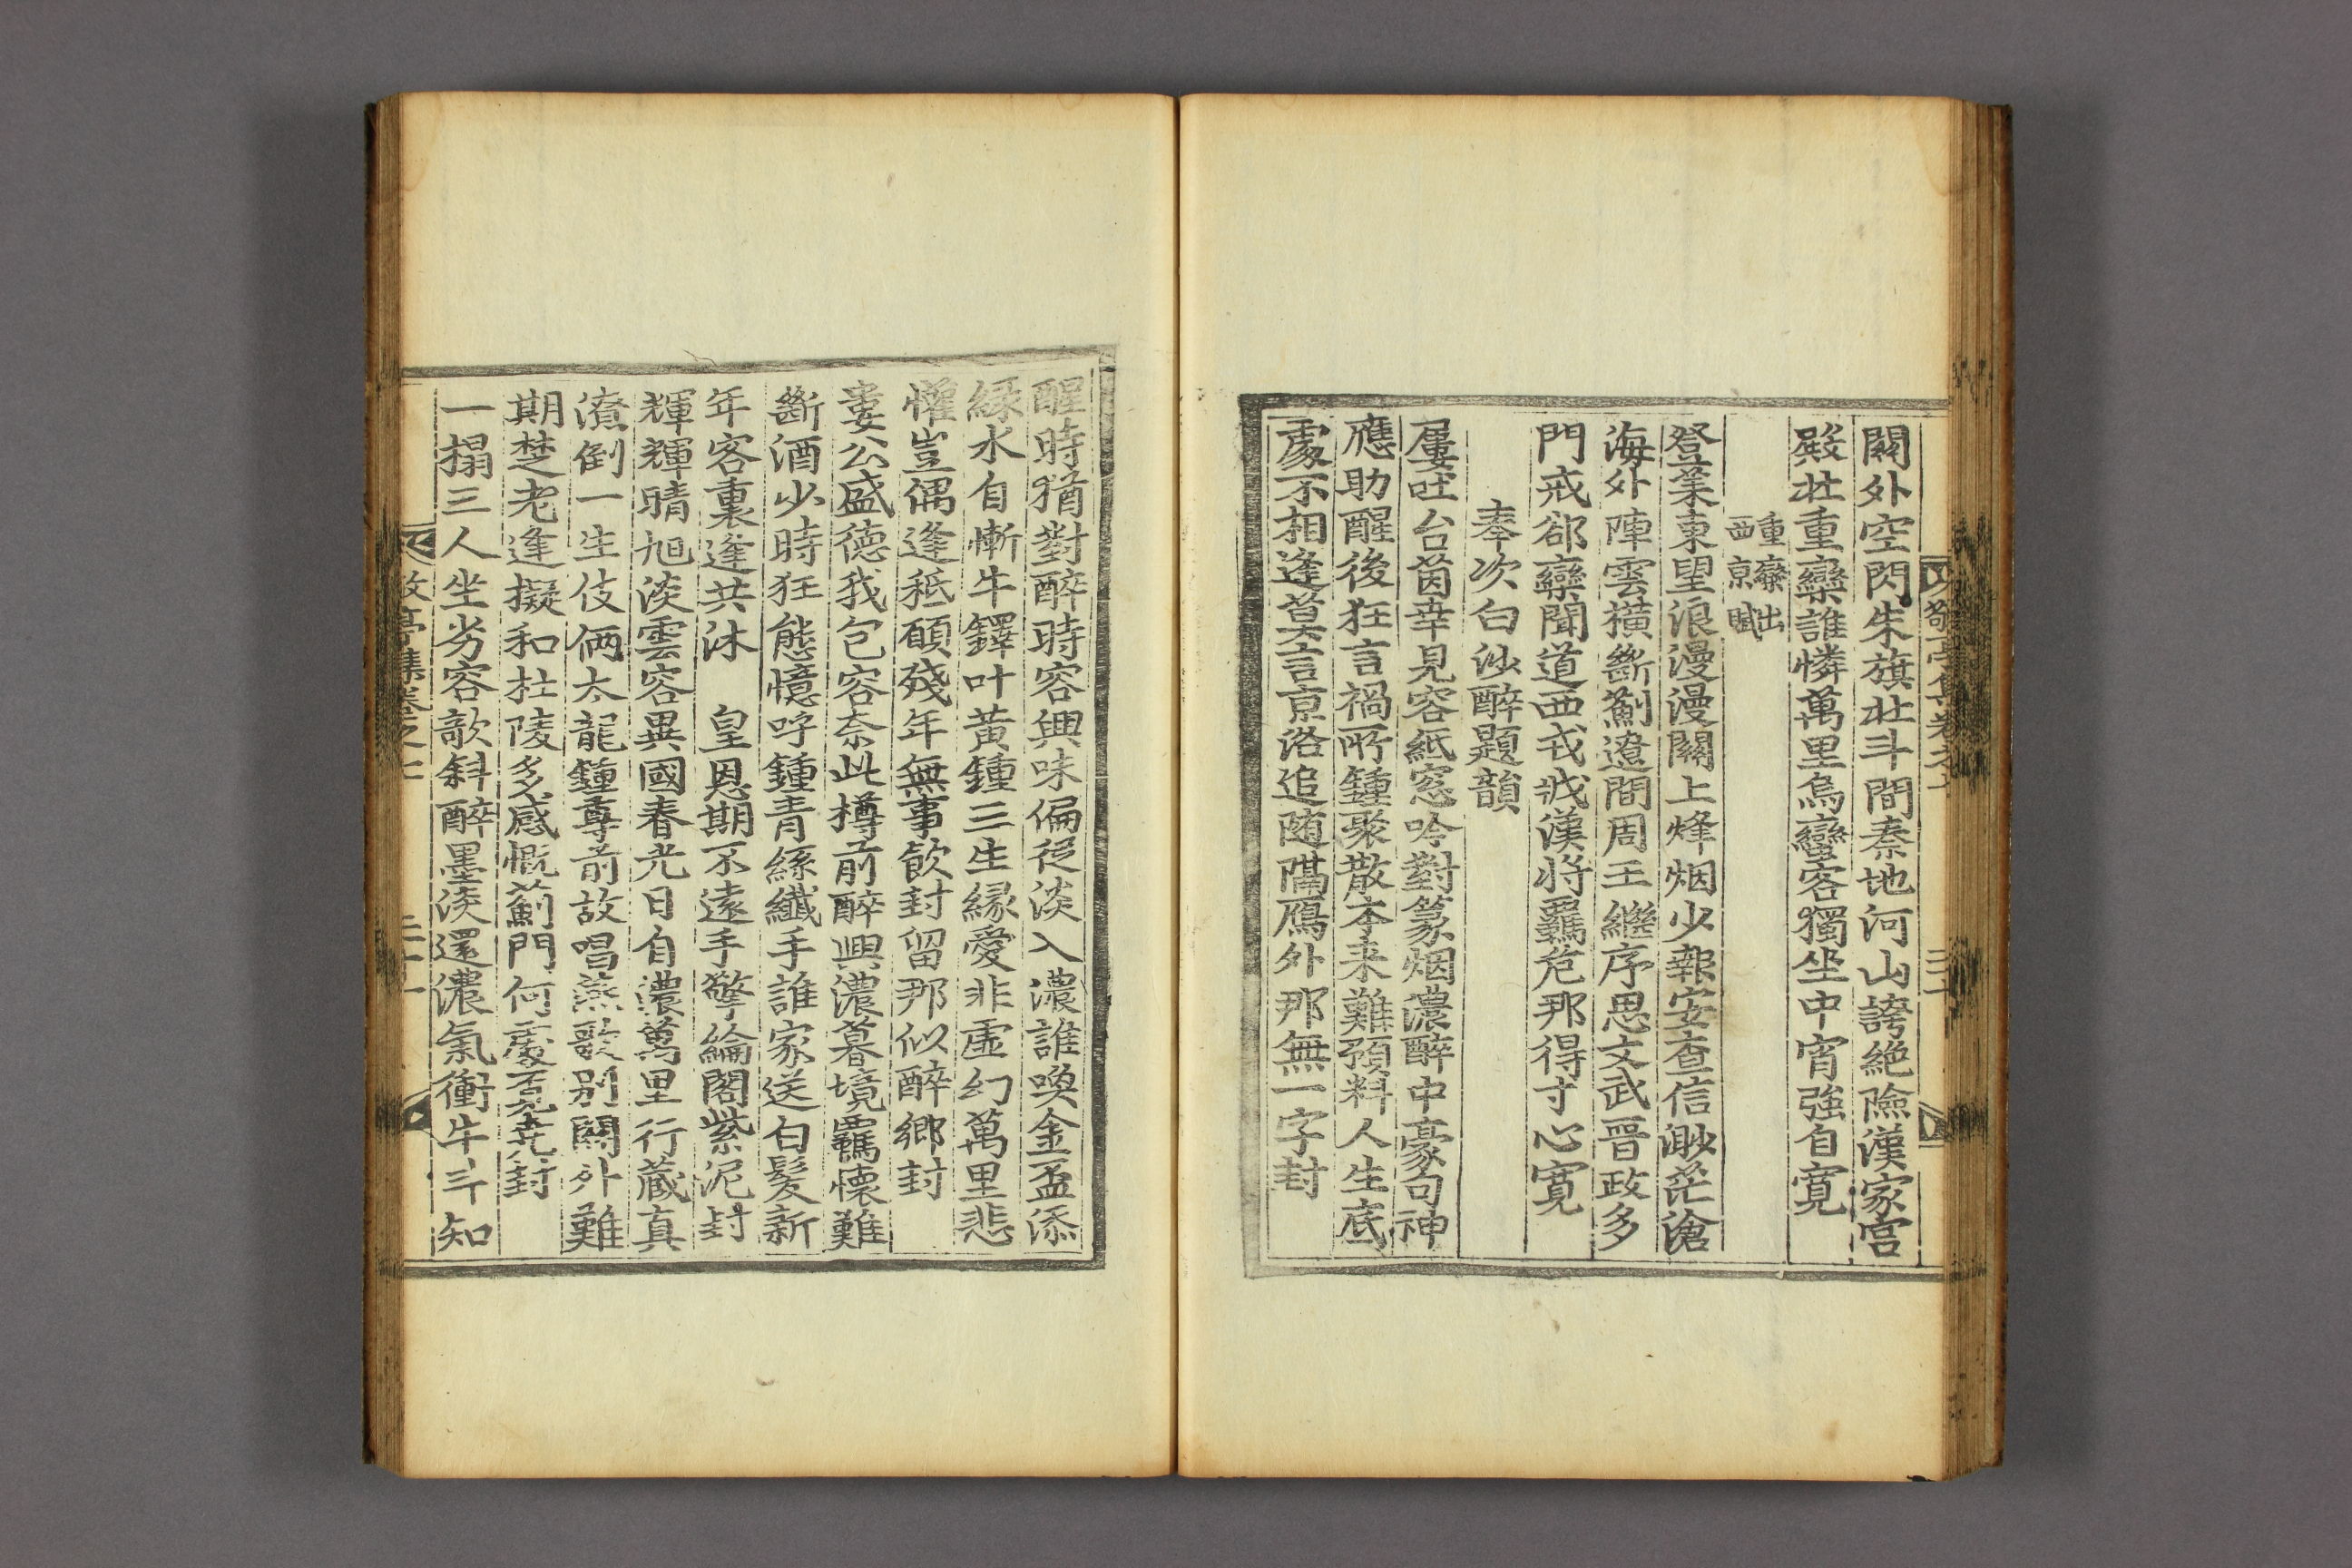 關外空閃朱旗壯斗間秦地河山誇絶險漢家宮
殿壯重欒誰憐萬里烏蠻客獨坐中宵強自寬
重欒出
西京賦
登業東望浪漫漫關上烽烟少報安查信渺茫滄
海外陣雲橫斷薊遼間周王繼序思文武晉政多
門戒郤欒聞道西戎戕漢將羈危那得寸心寬
奉次白沙醉題韻
屢吐台茵幸見容紙窓吟對篆烟濃醉中豪句神
應助醒後狂言禍所鍾聚散本来難預料人生底
處不相逢莫言京洛追随隔鴈外那無一字封
醒時猶對醉時容興味偏從淡入濃誰喚金盃添
緑水自慚牛鐸叶黃鍾三生縁愛非虛幻萬里悲
懽豈偶逢秪願殘年無事飮封留那似醉鄉封
婁公盛德我包容奈此樽前醉興濃暮境羈懷難
斷酒少時狂態憶呼鍾青絲纖手誰家送白髮新
年客裏逢共沐　皇恩期不遠手擎綸閣紫泥封
輝輝晴旭淡雲容異國春光日自濃萬里行藏真
潦倒一生伎倆太龍鍾尊前故唱燕歌别關外難
期楚老逢擬和杜陵多感慨薊門何處
封
一榻三人坐劣容歌斜醉墨淡還濃氣衝牛斗知
敬亭集卷之